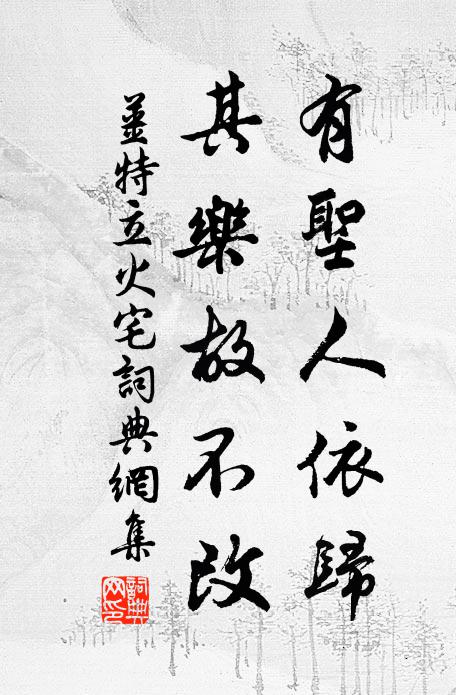 有聖人依歸
其樂故不改
姜特立火宅詞典網集
詞典網印